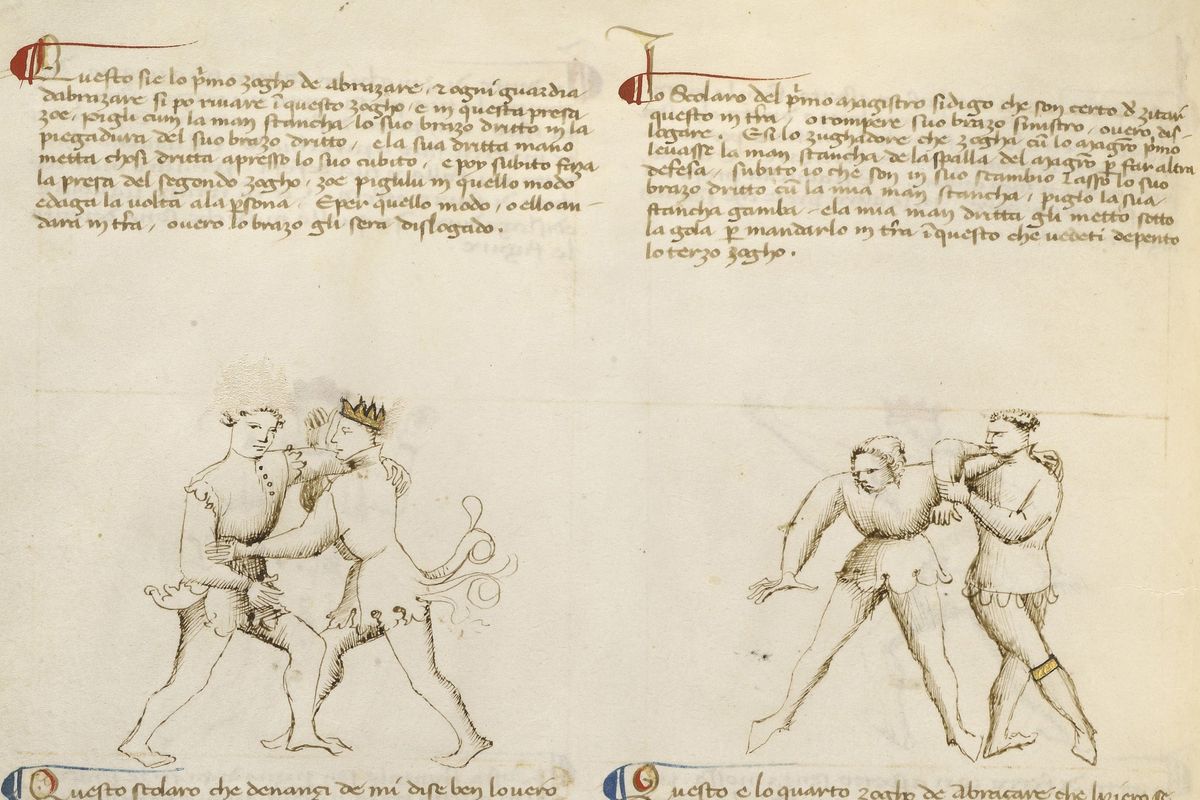 Questo sie lo p̃mo zogho de abrazare, ⁊ ogni guardia
dabrazare si po rivare ĩ questo zogho, e in questa presa
zoe, pigli cum la man stancha lo suo brazo dritto in la
piegadura del suo brazo dritto, e la sua dritta mano
metta chosi dritta apresso lo suo cubito, e poy subito faza
la presa del segondo zogho, zoe pigululu in quello modo
e daga la volta ala p̱sona. E per quello modo, o ello an-
dara in tr̃a, overo lo brazo gli sera dislogado.
Lo Scolaro del p̃mo magistro si digo che son certo d̃ zitar
questo in tr̃a, o rompere suo brazo sinistro, overo dis-
logare. E si lo zughadore che zogha cũ lo magr̃o p̃mo
levasse la man stancha de la spalla del magr̃o p̱ far altra
defesa, subito io che son in suo scambio lasso lo suo
brazo dritto cũ la mia man stancha, piglo la sua
stancha gamba, e la mia man dritta gli metto sotto
la gola p̱ mandarlo in tr̃a ĩ questo che vedeti depento
lo terzo zogho.
Questo scolaro che denanzi de mi dise ben lo vero
Questo e lo quarto zogho de Abracare che